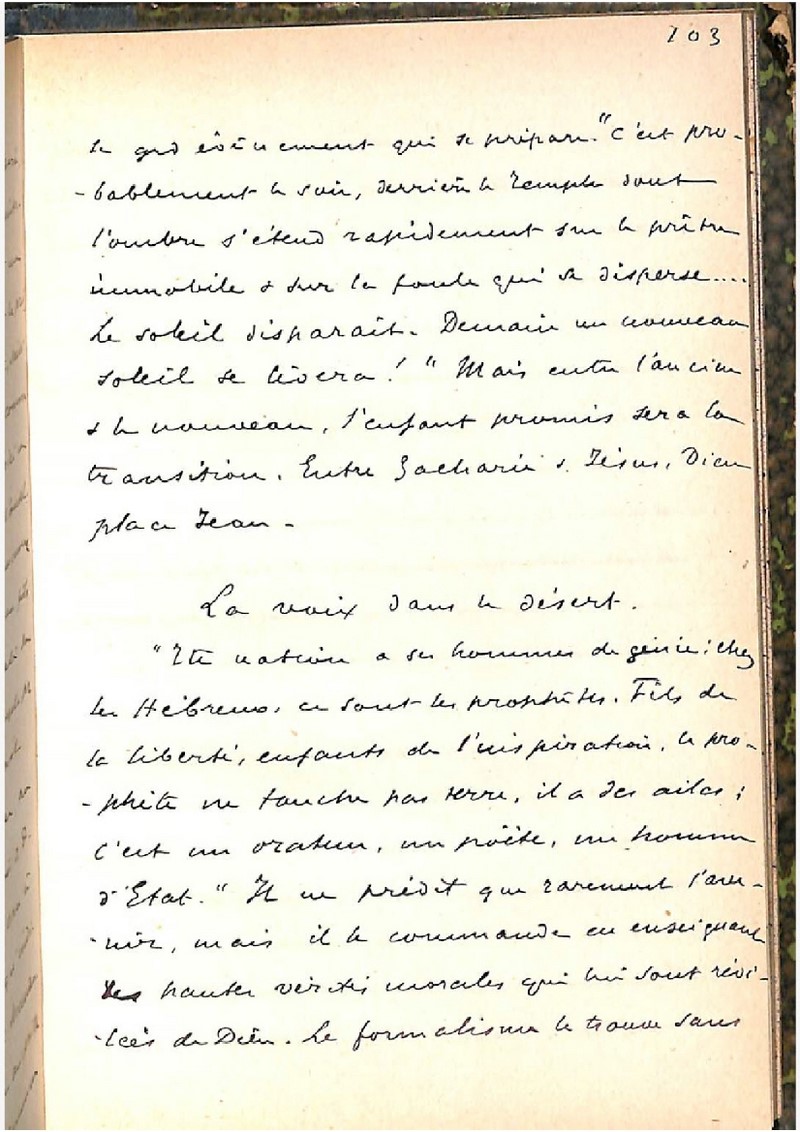 103
le grd évènement qui se prépare. "C'est pro-
-bablement le soir, derrière le Temple dont
l'ombre s'étend rapidement sur le prêtre
immobile & sur la foule qui se disperse....
Le soleil disparaît. Demain un nouveau
soleil se lèvera! " Mais entre l'ancien
& le nouveau, l'enfant promis sera la
transition. Entre Zacharie & Jésus, Dieu
place Jean -
La voix dans le désert.
"Tte nation a ses hommes de génie: chez
les Hébreux, ce sont les prophètes. Fils de
la liberté, enfants de l'inspiration, le pro-
-phète ne touche pas terre, il a des ailes;
c'est un orateur, un poëte, un homme
d'Etat." Il ne prédit que rarement l'ave-
-nir, mais il le commande en enseignant
les hautes vérités morales qui lui sont révé-
-lées de Dieu. Le formalisme le trouve sans